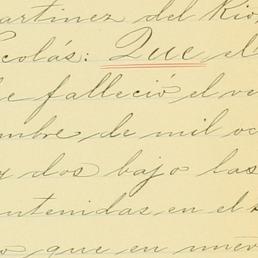 artinez del Rio
colás: Que el
e falleció el ve
mbre de mil oc
y dos bajo las
ntenidas en el
o que en nuev